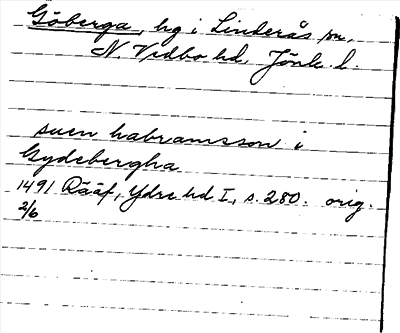 Göberga, hg i Linderås sn,
N. Vedbo hd, Jönk. l.
suen habramsson i
Gydebergha
1491 Rääf, Ydre hd I, s. 280. orig.
2/6